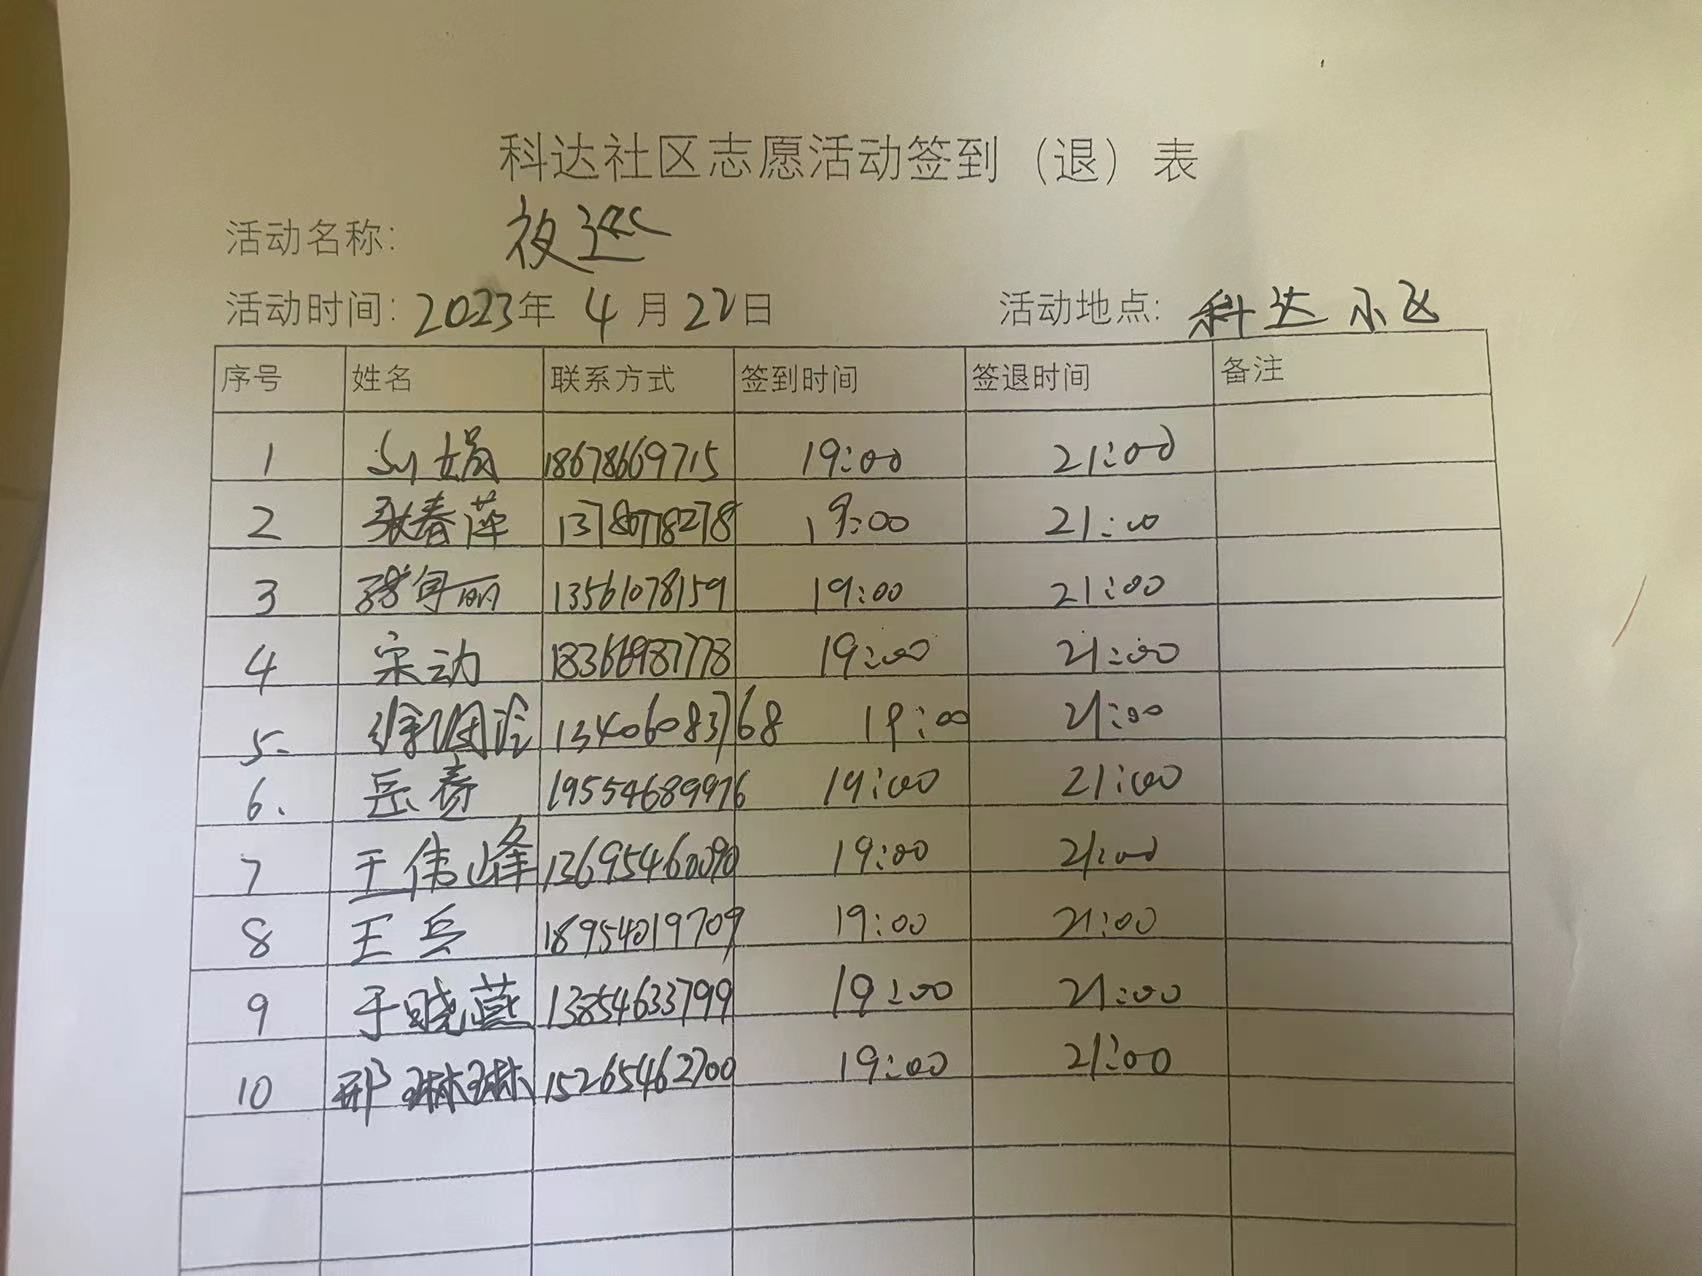 科达社区志愿活动签到（退）表
活动名称: 夜巡
活动时间: 2023年 4月22日 活动地点: 科达小区
序号 姓名 联系方式 签到时间 签退时间 备注
1 娟 18678669715 19:00 21:00
2 张春萍 19:00 21:00
3 丽 13561078159 19:00 21:00
4 宋动 18366987778 19:00 21:00
5. 徐 13406083768 19:00 21:00
6. 岳春 19554689976 19:00 21:00
7 王伟峰 13695460090 19:00 21:00
8 王兵 18954019709 19:00 21:00
9 于晓燕 13854633799 19:00 21:00
10 邢琳琳 15265462700 19:00 21:00